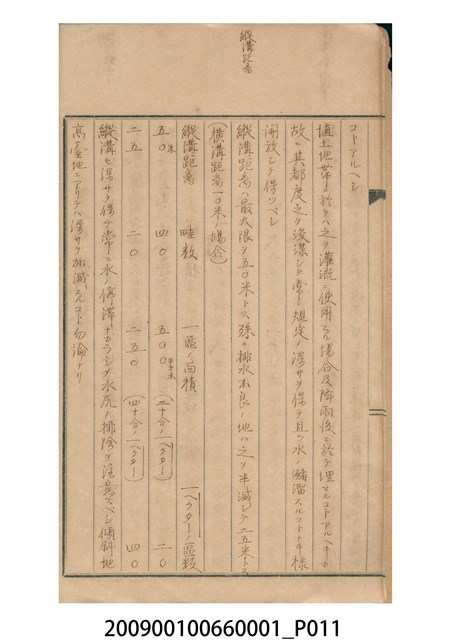 縦溝距離
コトアルベシ
埴土地帯ニ於テハ之ヲ灌漑ニ使用スル場合及降雨後ニ於テ埋マルコトアルベキカ
故ニ其都度之ヲ浚渫シテ常ニ規定ノ深サヲ保チ且ツ水ノ瀦溜スルコトナキ様
開放シテ保ツベシ
縦溝距離ハ最大限ヲ五〇米トス、殊ニ排水不良ノ地ハ之ヲ半減シテ二五米トス
(横溝距離一〇米ノ場合)
縦溝距離 畦数 一区ノ面積 一ヘクターノ区数
五〇米 四〇 五〇〇平方米 (二十分ノ一ヘクター) 二〇
二五 二〇 二五〇 (四十分ノ一ヘクター) 四〇
縦溝モ深サヲ保チ常ニ水ノ停滞ナカラシメ水尻ノ排除ヲ注意スベシ傾斜地
高台地ニアリテハ深サヲ加減スルコト勿論ナリ
200900100660001_P011